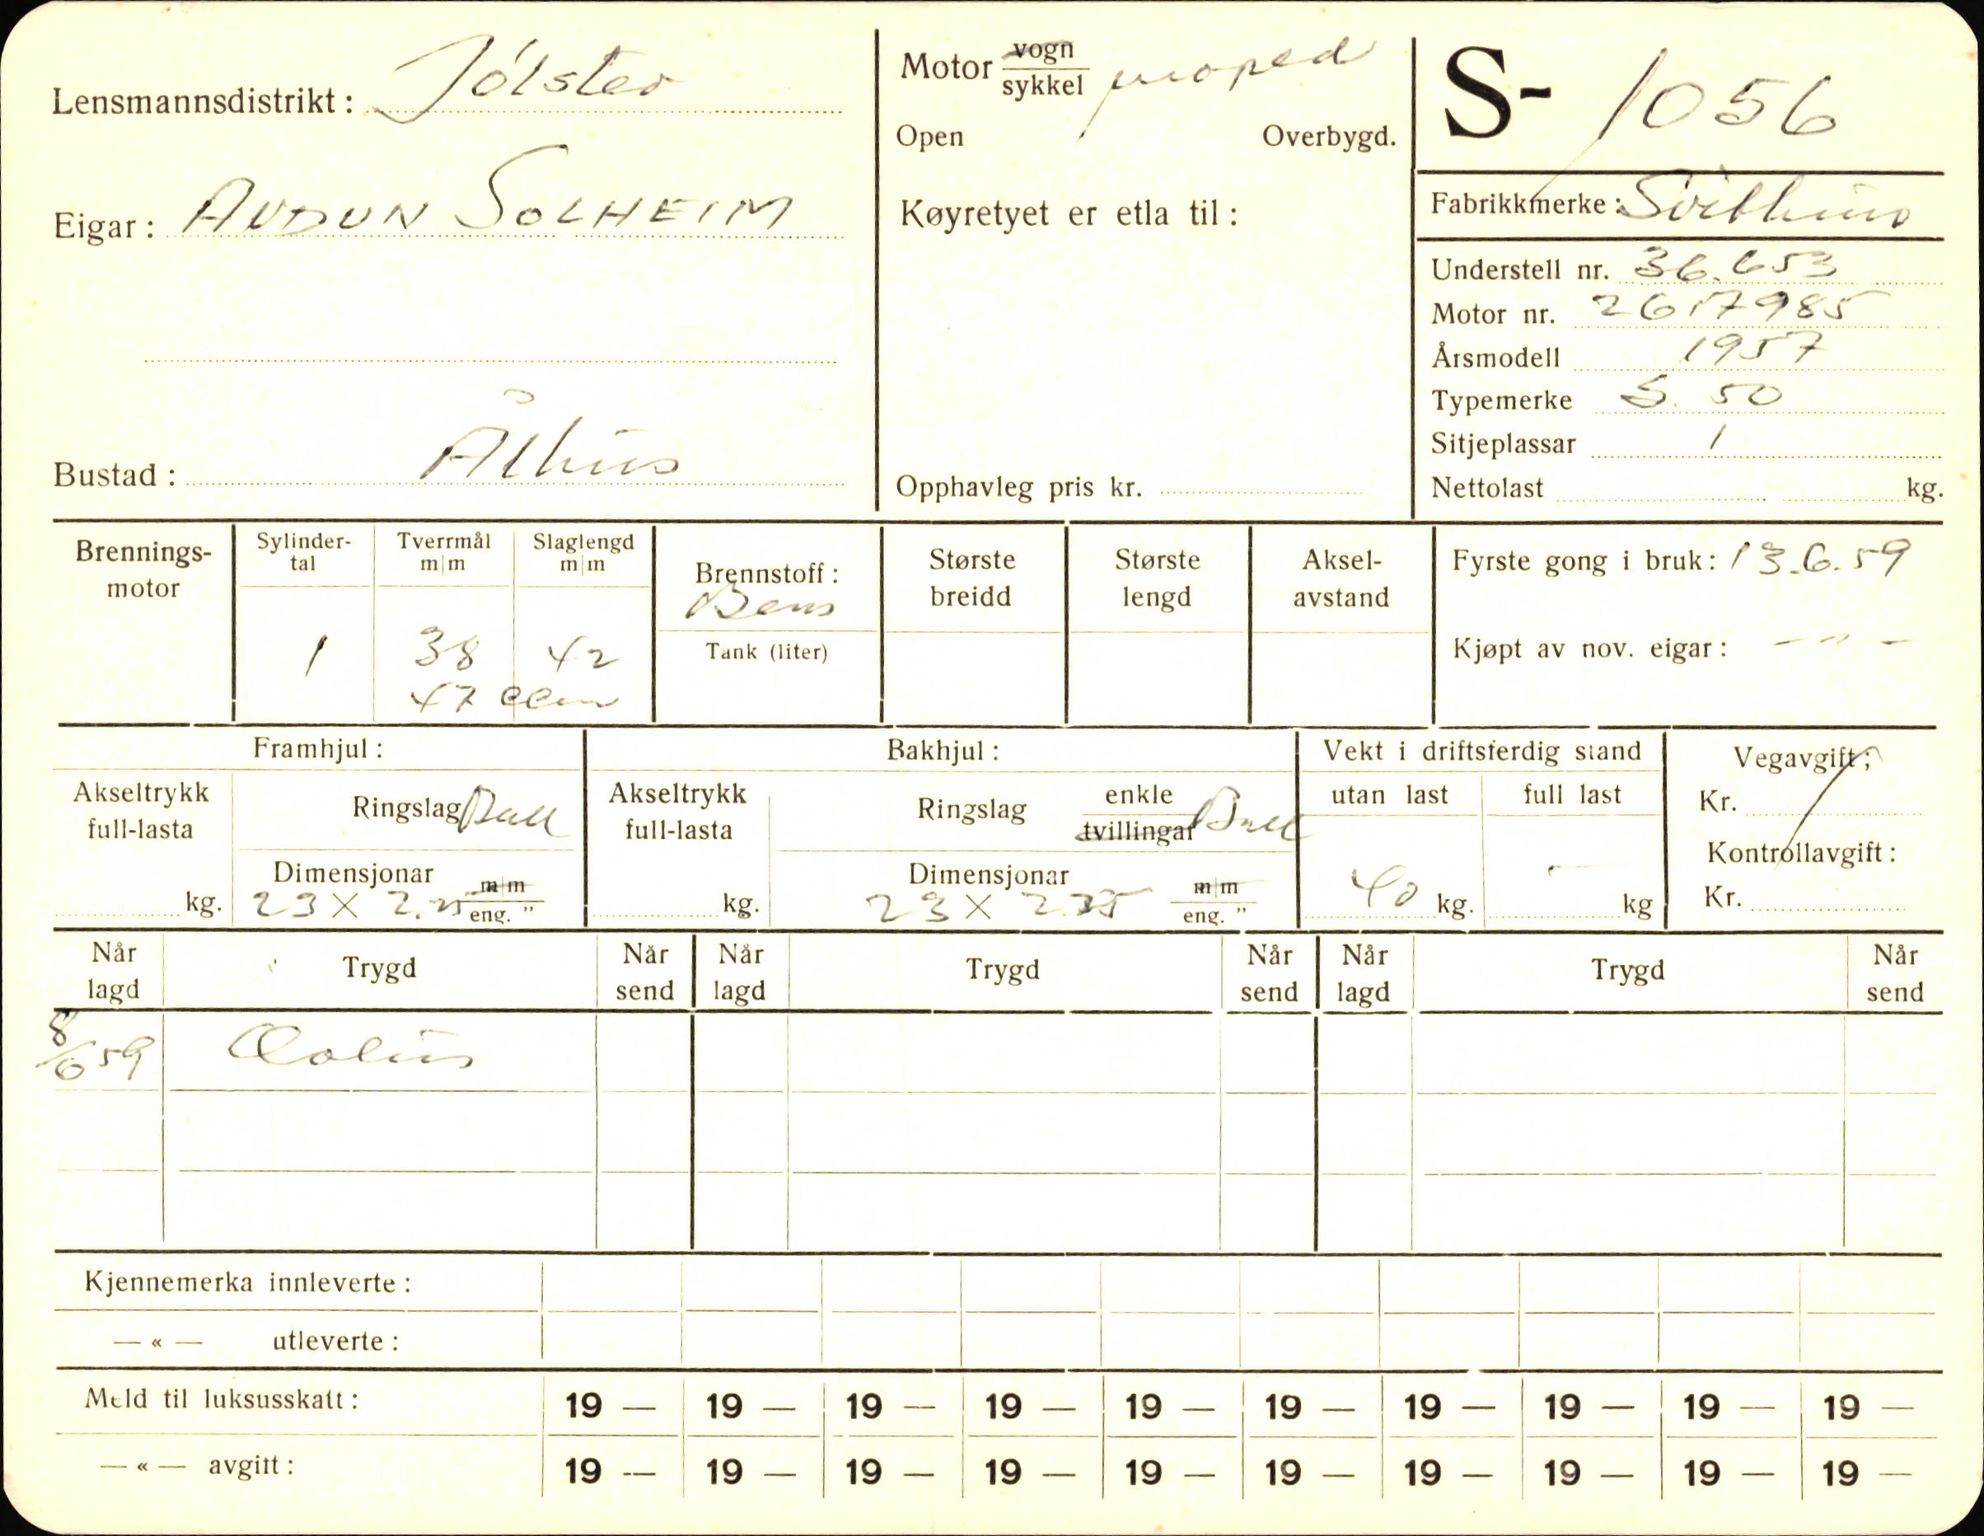 Lensmannsdistrikt: Jölster
Eigar: AUDUN SOLHEIM
Bustad: Ålhus
Motor vogn
sykkel moped
Open Overbygd.
Køyretyet er etla til:
Opphavleg pris kr.
S- 1056
Fabrikkmerke: Svithun
Understell nr. 36.653
Motor nr. 2617985
Årsmodell 1957
Typemerke S. 50
Sitjeplassar 1
Nettolast kg.
Brennings-
motor
Sylinder-
tal
1
Tverrmål
m/m
38
Slaglengd
m/m
42
47 ccm
Brennstoff:
Bens
Tank (liter)
Største
breidd
Største
lengd
Aksel-
avstand
Fyrste gong i bruk: 13.6.59
Kjøpt av nov. eigar: — " —
Framhjul:
Akseltrykk
full-lasta
kg.
Ringslag Ball
Dimensjonar
23 X 2.25 m/m
eng. "
Bakhjul:
Akseltrykk
full-lasta
kg.
Ringslag enkle
tvillingar Ball
Dimensjonar
23 X 2.25 m/m
eng. "
Vekt i driftsferdig stand
utan last full last
40 kg. — kg
Vegavgift:
Kr.
Kontrollavgift:
Kr.
Når
lagd Trygd Når
send Når
lagd Trygd Når
send Når
lagd Trygd Når
send
8/6 59 Æolus
Kjennemerka innleverte:
— « — utleverte:
Meld til luksusskatt: 19 — 19 — 19 — 19 — 19 — 19 — 19 — 19 — 19 — 19 —
— « — avgift: 19 — 19 — 19 — 19 — 19 — 19 — 19 — 19 — 19 — 19 —